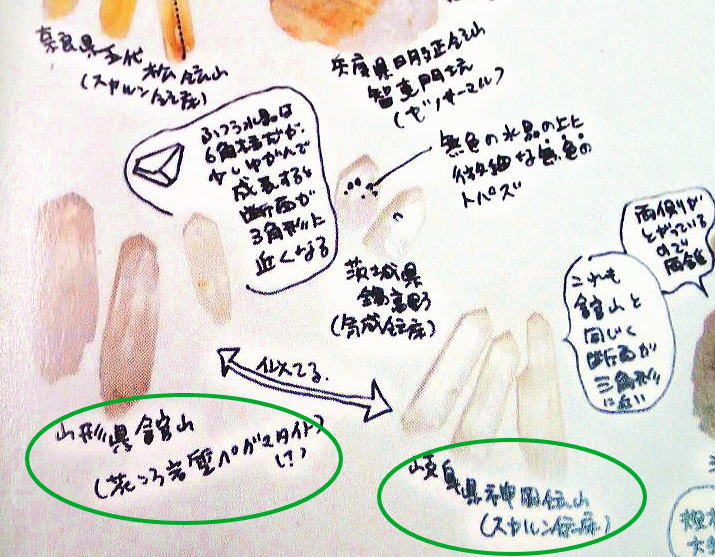 奈良県五代松鉱山
(スカルン鉱床)
兵庫県明延鉱山
智恵門坑
(ゼノサーマル)
ふつう水晶は
6角柱だが、
少しゆがんで
成長すると
断面が
3角形に
近くなる
無色の水晶の上に
微細な無色の
トパーズ
茨城県
錫高野
(気成鉱床)
両側が
とがっている
ので
両錐
これも
舘山と
同じく
断面が
三角形に
近い
似てる.
山形県舘山
(花こう岩質ペグマタイト)
(?)
岐阜県神岡鉱山
(スカルン鉱床)